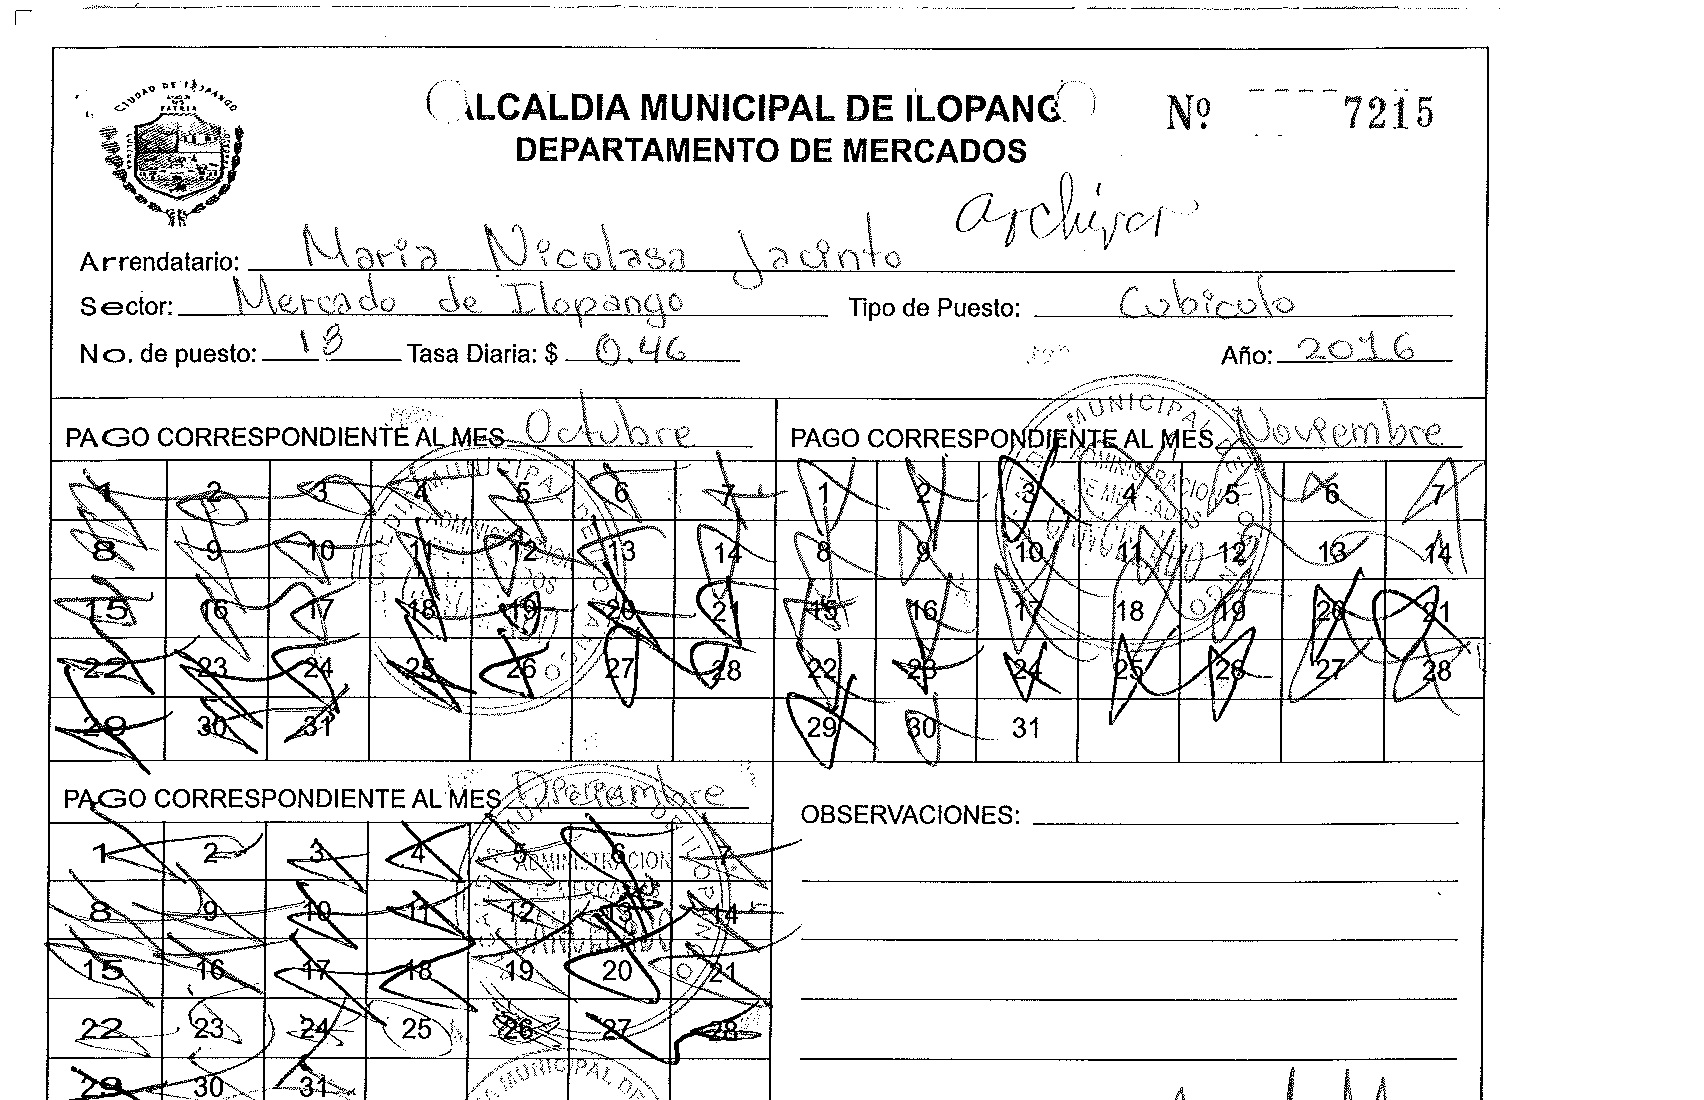 CIUDAD DE ILOPANGO
PATRIA
ALCALDIA MUNICIPAL DE ILOPANGO
Nº 7215
DEPARTAMENTO DE MERCADOS
Archivar
Arrendatario: Maria Nicolasa Jacinto
Sector: Mercado de Ilopango Tipo de Puesto: Cubiculo
No. de puesto: 18 Tasa Diaria: $ 0.46 Año: 2016
PAGO CORRESPONDIENTE AL MES Octubre
1 2 3 4 5 6 7
8 9 10 11 12 13 14
15 16 17 18 19 20 21
22 23 24 25 26 27 28
29 30 31
PAGO CORRESPONDIENTE AL MES Noviembre
1 2 3 4 5 6 7
8 9 10 11 12 13 14
15 16 17 18 19 20 21
22 23 24 25 26 27 28
29 30 31
PAGO CORRESPONDIENTE AL MES
1 2 3 4 5 6 7
8 9 10 11 12 13 14
15 16 17 18 19 20 21
22 23 24 25 26 27 28
29 30 31
ADMINISTRACION
MUNICIPAL DE
OBSERVACIONES: